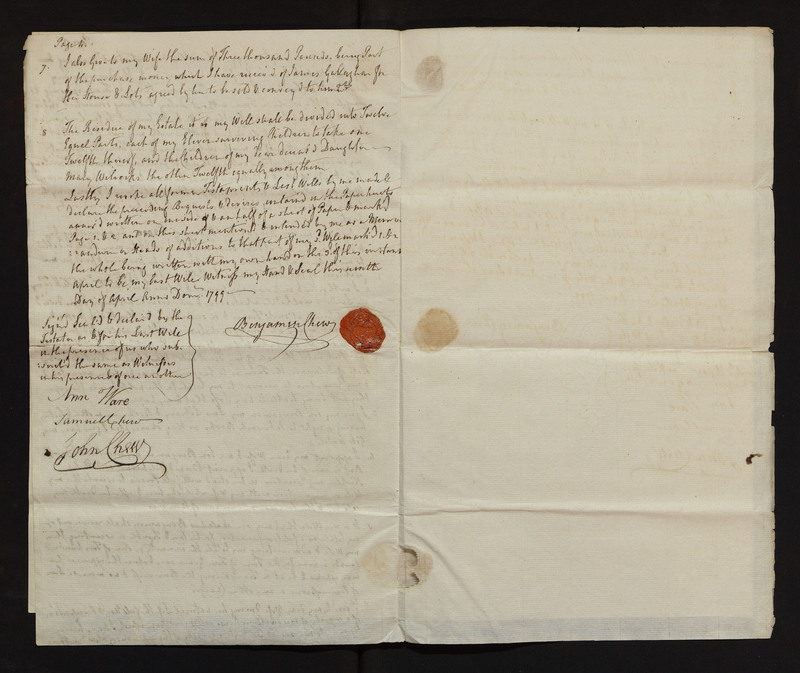 Page 4.
7. I also Give to my Wife the sum of Three thousand Pounds, being Part
of the purchase money which I have receiv'd of James Gallagher for
the House & Lots agreed by him to be sold & convey'd to him
8 The Residue of my Estate it is my Will shall be divided into Twelve
Equal Parts, each of my Eleven surviving Children to take one
Twelfth thereof, and the Children of my dear deceas'd Daughter
Mary Wilcocks the other Twelfth equally among them
Lastly I revoke all former Testaments & Last Wills by me made &
declare the preceeding Bequests & devises contained in the Paper hereto
annex'd written on one side of & an half of a sheet of Paper & mark'd
Page 1. & 2. and this sheet mention'd & intended by me as a Memo
randum or Heads of additions to that part of my Will mark'd 1. & 2
the whole being written with my own hand on the of this instant
April to be my last Will. Witness my Hand & Seal this ninth
Day of April Anno Dom. 1799
Sign'd Seal'd & declar'd by the
Testator as & for his Last Will
in the presence of us who sub
scrib'd the same as Witnesses
in his presence & of one another
Benjamin Chew
Ann Ware
Samuel Chew
John Chew